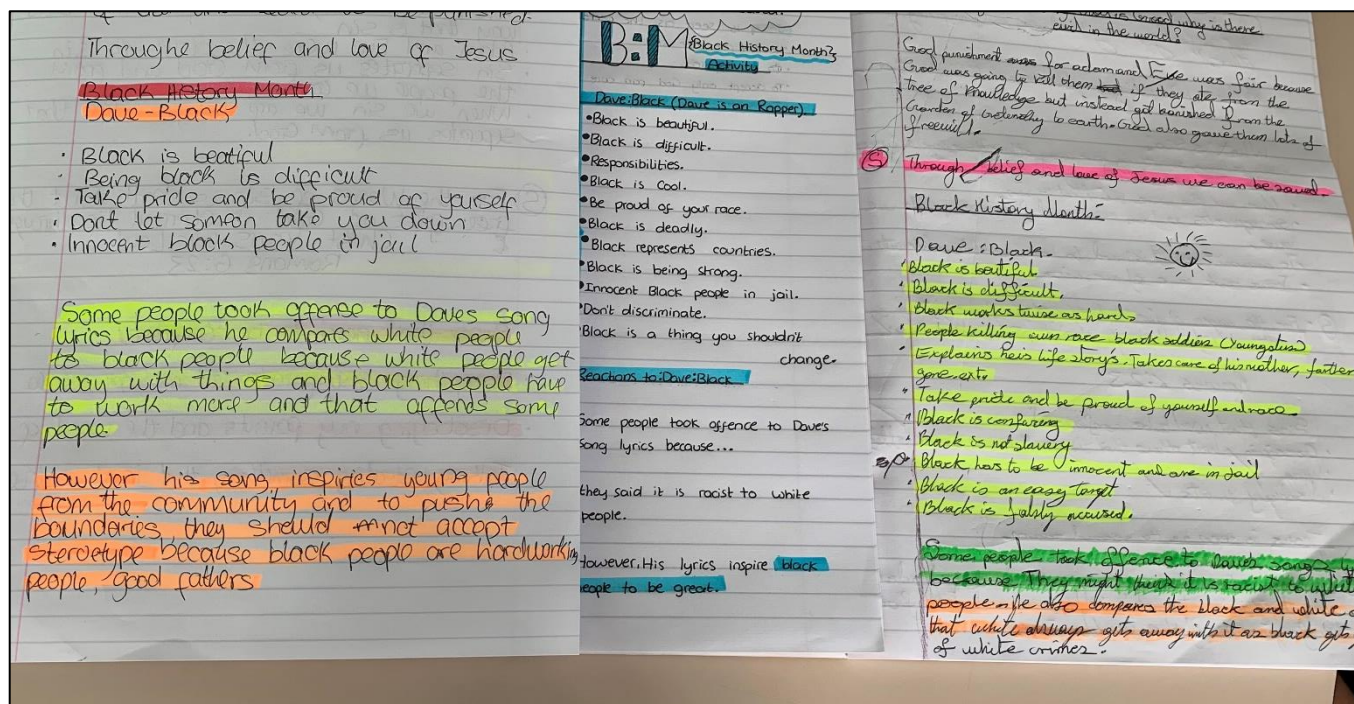 to be punished.
Throughe belief and love of Jesus
Black History Month
Dave-Black
· Black is beatiful
· Being black is difficult
· Take pride and be proud of yourself
· Dont let someon take you down
· Innocent black people in jail
Some people took offense to Daves song
lyrics because he compars white people
to black people because white people get
away with things and black people have
to work more and that offends some
people.
However his song inspiries young people
from the community and to pushe the
boundaries they should not accept
steroetype because black people are hardworking
people, good fathers
B:M
{Black History Month}
Activity
Dave:Black (Dave is an Rapper).
•Black is beautiful.
•Black is difficult.
•Responsibilities.
•Black is Cool.
•Be proud of your race.
•Black is deadly.
•Black represents countries.
•Black is being strong.
•Innocent Black people in jail.
•Don't discriminate.
Black is a thing you shouldn't
change.
Reactions to:Dave:Black
Some people took offence to Dave's
Song lyrics because...
they said it is racist to white
people.
However, His lyrics inspire black
people to be great.
why is there
evil in the world?
God punishment for adam and Eve was fair because
God was going to kill them if they from the
Tree of Knowledge but instead got banished from the
Garden of to earth. God also gave them lots of
freewill.
(5) Through belief and love of Jesus we can be saved.
Black History Month:
Dave:Black.
· Black is beutiful
· Black is difficult,
· black works twise as hard,
· People killing own race black soldiers (Youngsters)
· Explains heis life story's. Takes care of his mother, farther
gone, ext.
· Take pride and be proud of yourself and race.
· Black is confusing
· Black is not slavery
sp · Black has to be innocent and are in jail
· Black is an easy Target
· Black is falsly accused.
Some people took offence to Daves song
because They might think it is racist to
people. He also compares the black and white
that white always gets away with it as black gets
of white crimes.